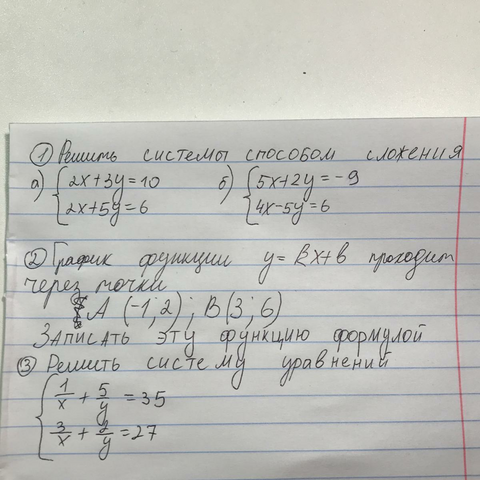 ① Решить системы способом сложения
а) { 2x+3y=10 б) { 5x+2y=-9
2x+5y=6 4x-5y=6
② График функции y=kx+b проходит
через точки
A (-1; 2); B(3; 6)
Записать эту функцию формулой
③ Решить систему уравнений
{ 1/x + 5/y = 35
3/x + 2/y = 27